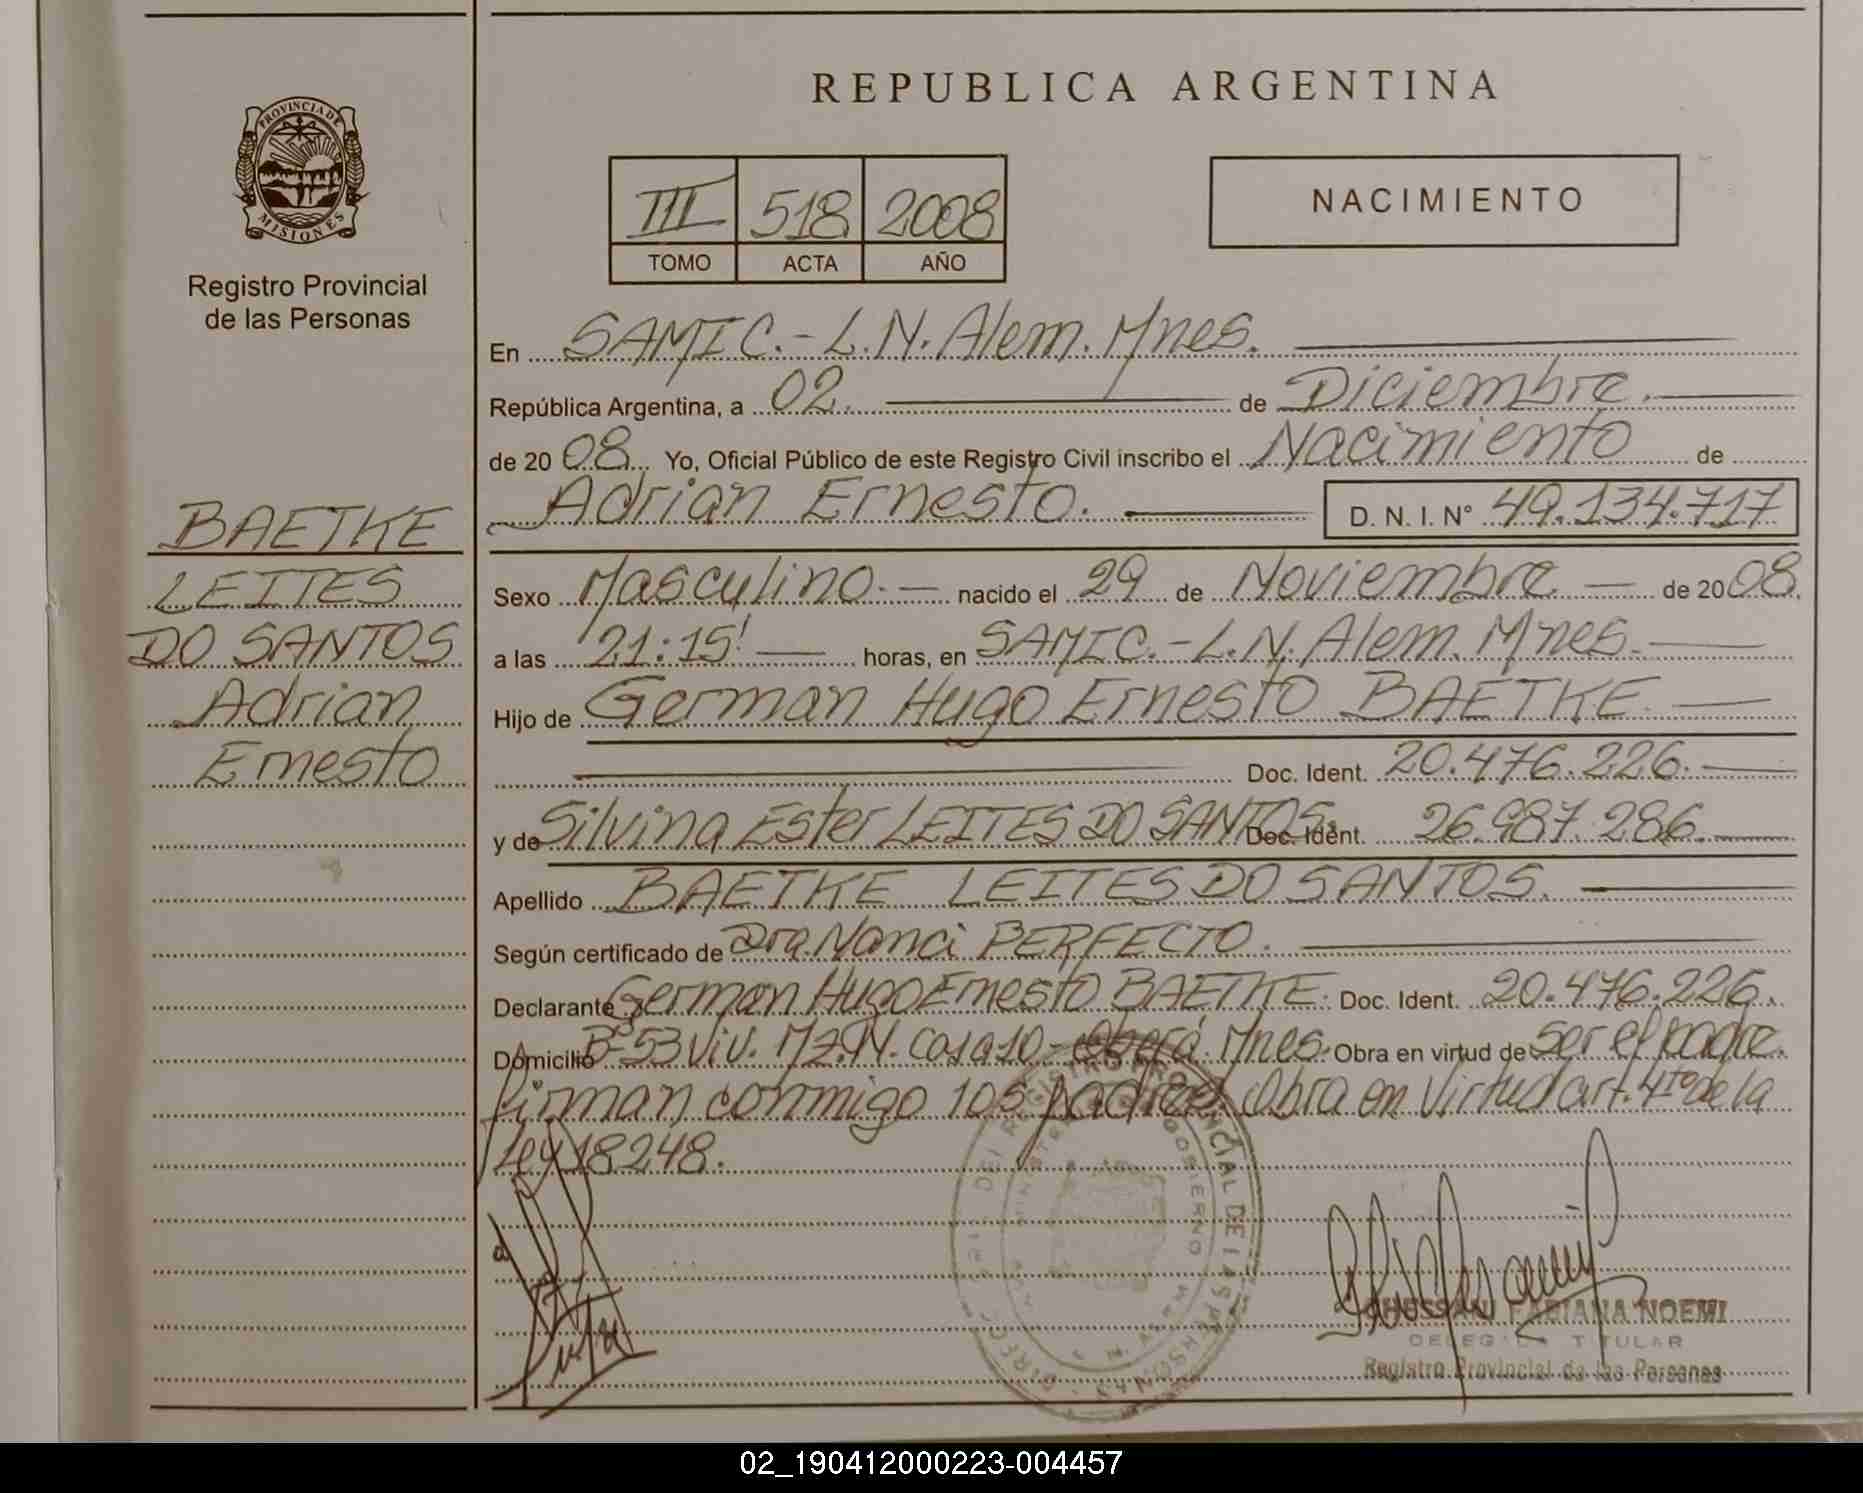 REPUBLICA ARGENTINA
PROVINCIA DE
MISIONES
Registro Provincial
de las Personas
III 518 2008
TOMO ACTA AÑO
NACIMIENTO
BAETKE
LEITES
DO SANTOS
Adrian
Ernesto
En SAMIC.- L.N. Alem. Mnes.
República Argentina, a 02. de Diciembre.
de 2008. Yo, Oficial Público de este Registro Civil inscribo el Nacimiento de
Adrian Ernesto. D. N. I. N° 49.134.717
Sexo Masculino. nacido el 29 de Noviembre de 2008.
a las 21:15' horas, en SAMIC.- L.N. Alem. Mnes.
Hijo de German Hugo Ernesto BAETKE
Doc. Ident. 20.476.226.
y de Silvina Ester LEITES DO SANTOS. Doc. Ident. 26.987.286.
Apellido BAETKE LEITES DO SANTOS.
Según certificado de Dra. Nanci PERFECTO.
Declarante German Hugo Ernesto BAETKE. Doc. Ident. 20.476.226.
Domicilio B° 53 Viv. Mz. N. Casa 10 - Oberá. Mnes. Obra en virtud de ser el padre.
firman conmigo los padres. Obra en Virtud art. 4to de la
ley 18248.
FABIANA NOEMI
TITULAR
Registro Provincial de las Personas
02_190412000223-004457